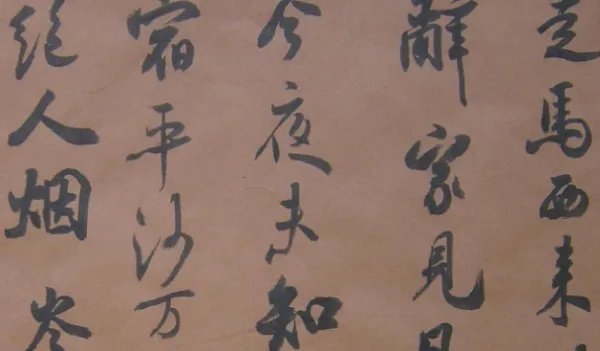 走馬西來
辭家見月
今夜未知
宿平沙万
絕人烟岑